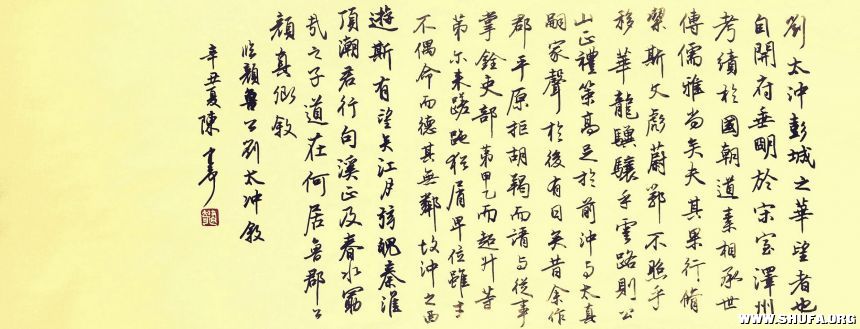 劉太冲彭城之華望者也
自開府垂明於宋室澤州
考績於國朝道素相承世
傳儒雅尚矣夫其果行脩
絜斯文彪蔚鄂不照乎
移華龍驥驤乎雲路則公
山正禮策高足於前冲与太真
嗣家聲於後有日矣昔余作
郡平原拒胡羯而請与從事
掌銓吏部第甲乙而超升等
第尔來蹉跎猶屑卑位雖才
不偶命而德其無鄰故冲之西
遊斯有望矣江月弦魄秦淮
頂潮君行句溪正及春水勗
哉之子道在何居魯郡公
顏真卿敘
臨顏魯公劉太冲敘
辛丑夏陳
WWW.SHUFA.ORG